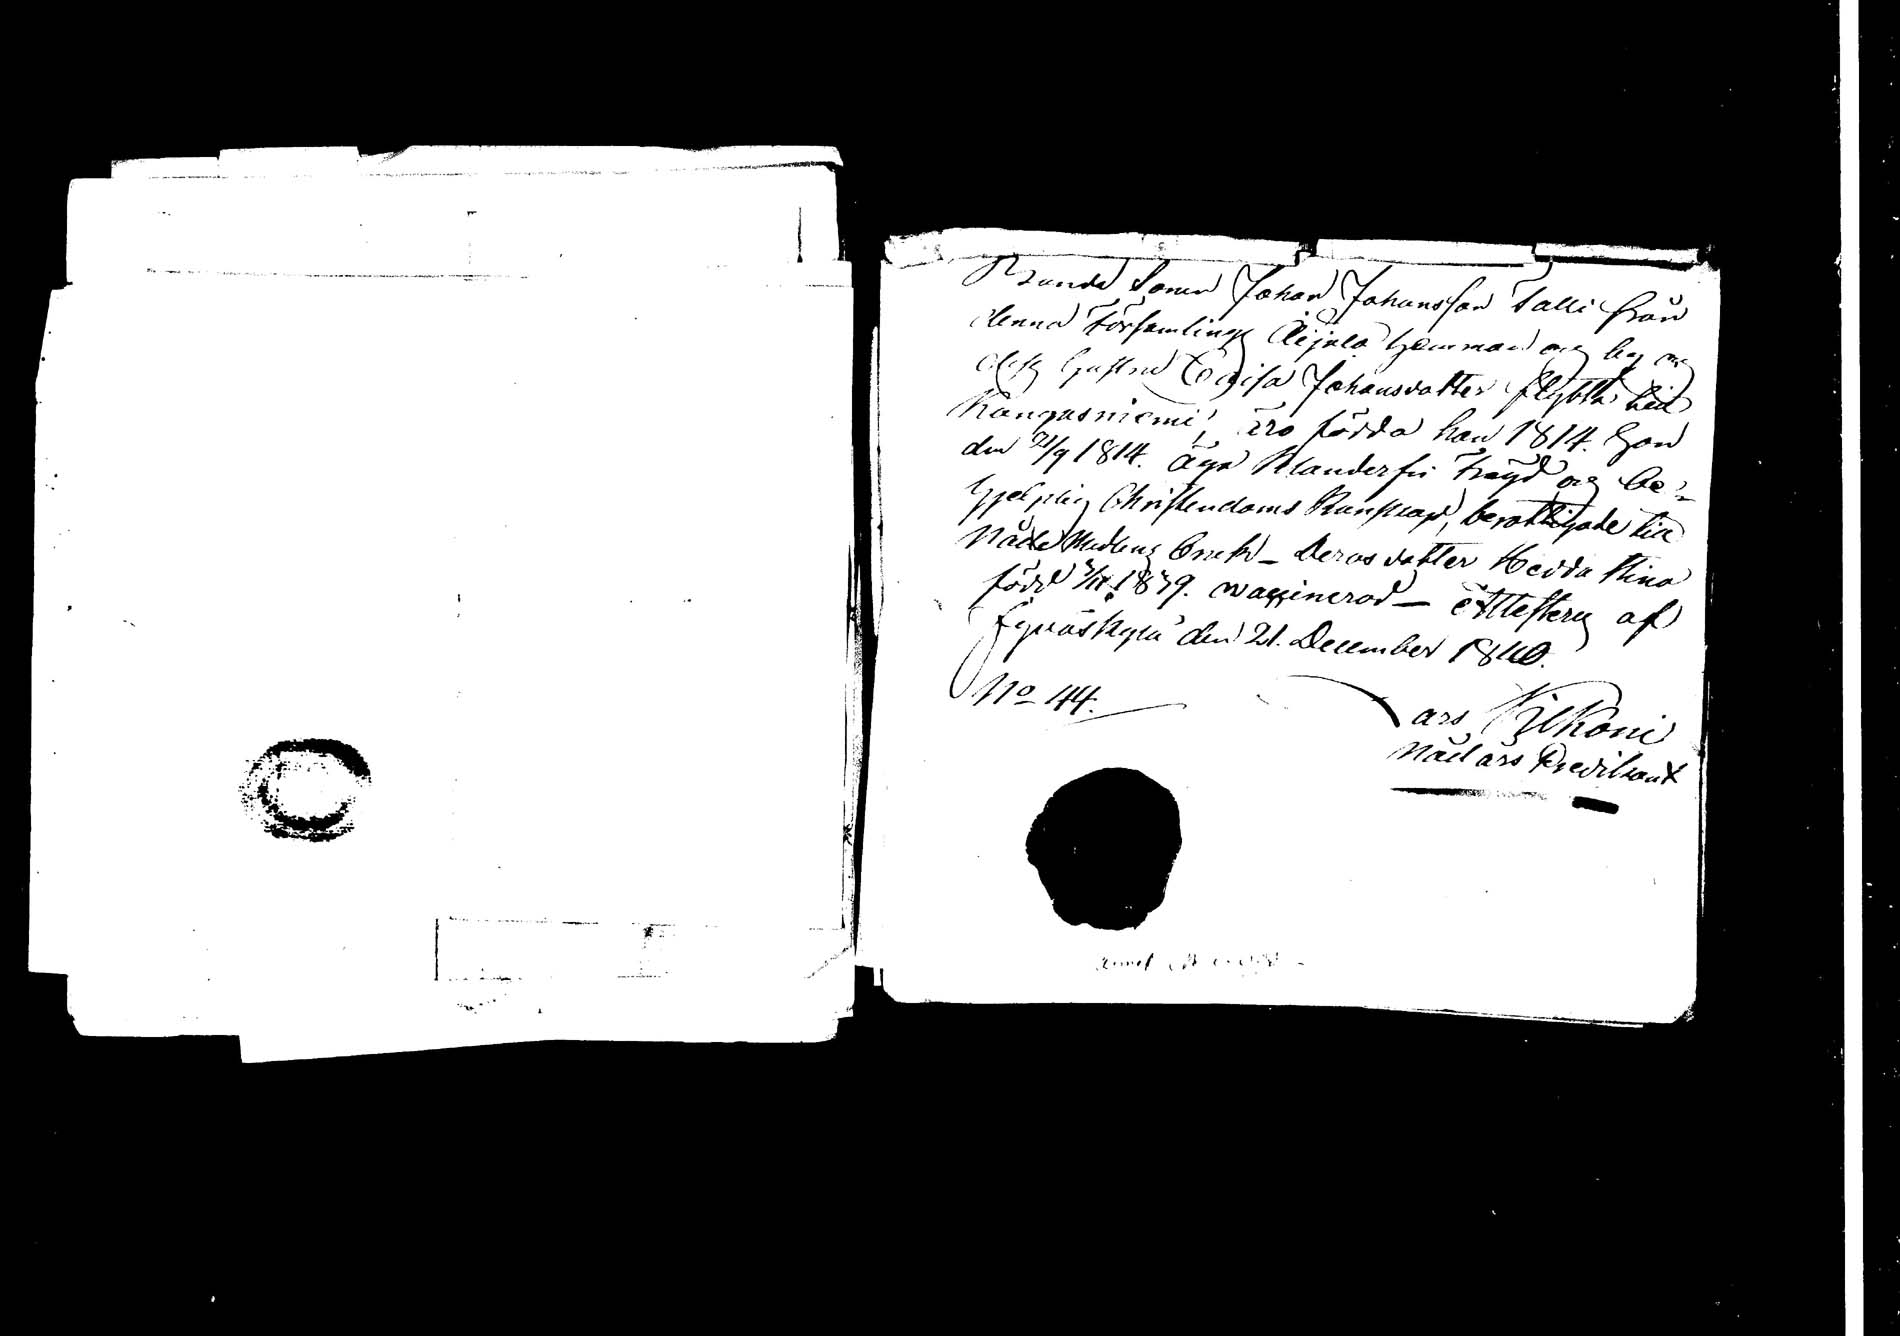 Bonde Sonen Johan Johansson Talli från
denna Församlings Äijälä Hemman och by och
dess hustru Lovisa Johansdotter flytta till
Kangasniemi, äro födda han 1814. hon
den 21/9 1814. äga klanderfri frejd och be-
hjelplig Christendoms Kunskap, berättigade till
Nåde Medlens bruk – Deras dotter Hedda Stina
född 1839. waccinerad – Attesteras af
Jyväskylä den 21. December 1840.
No 44.
Kiljoni
Nådårs Predikant